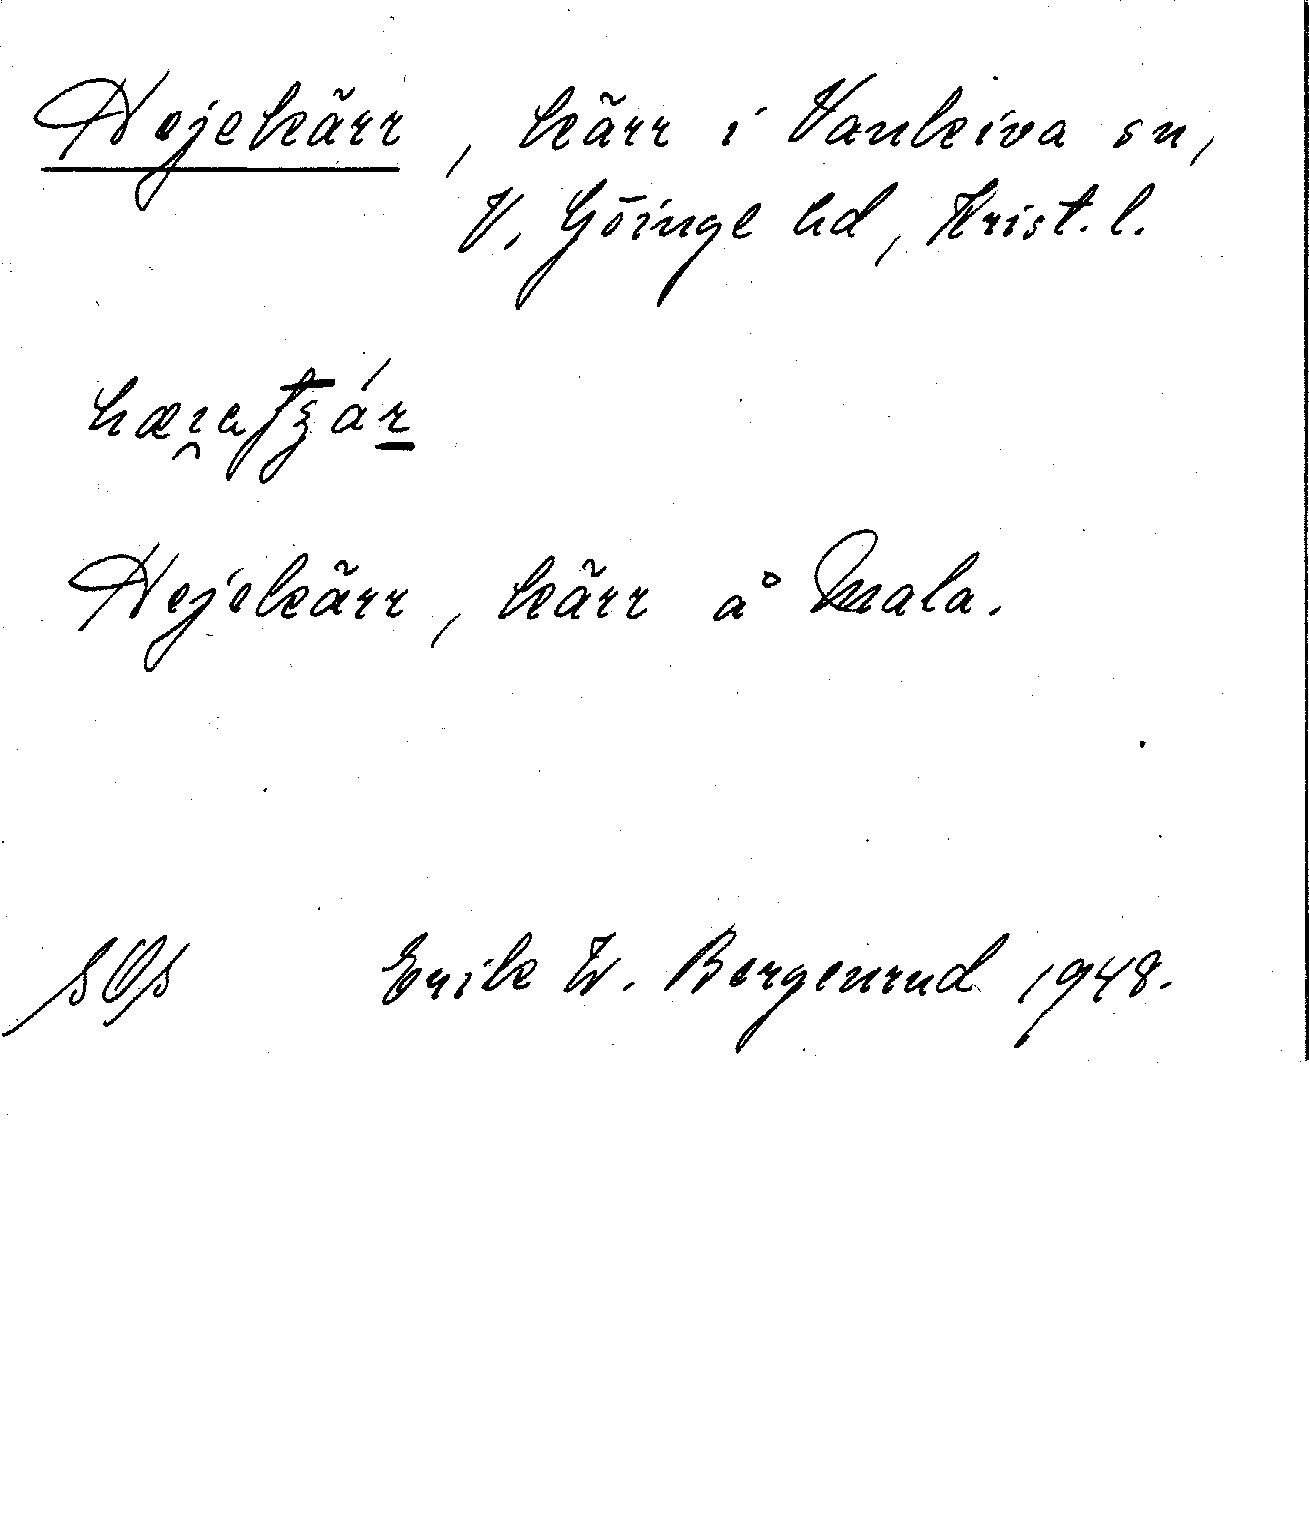 Hejekärr, kärr i Vankiva sn,
V. Göinge hd, Krist. l.
Hejekärr, kärr å Mala.
SOS Erik W. Bergenrud 1948.